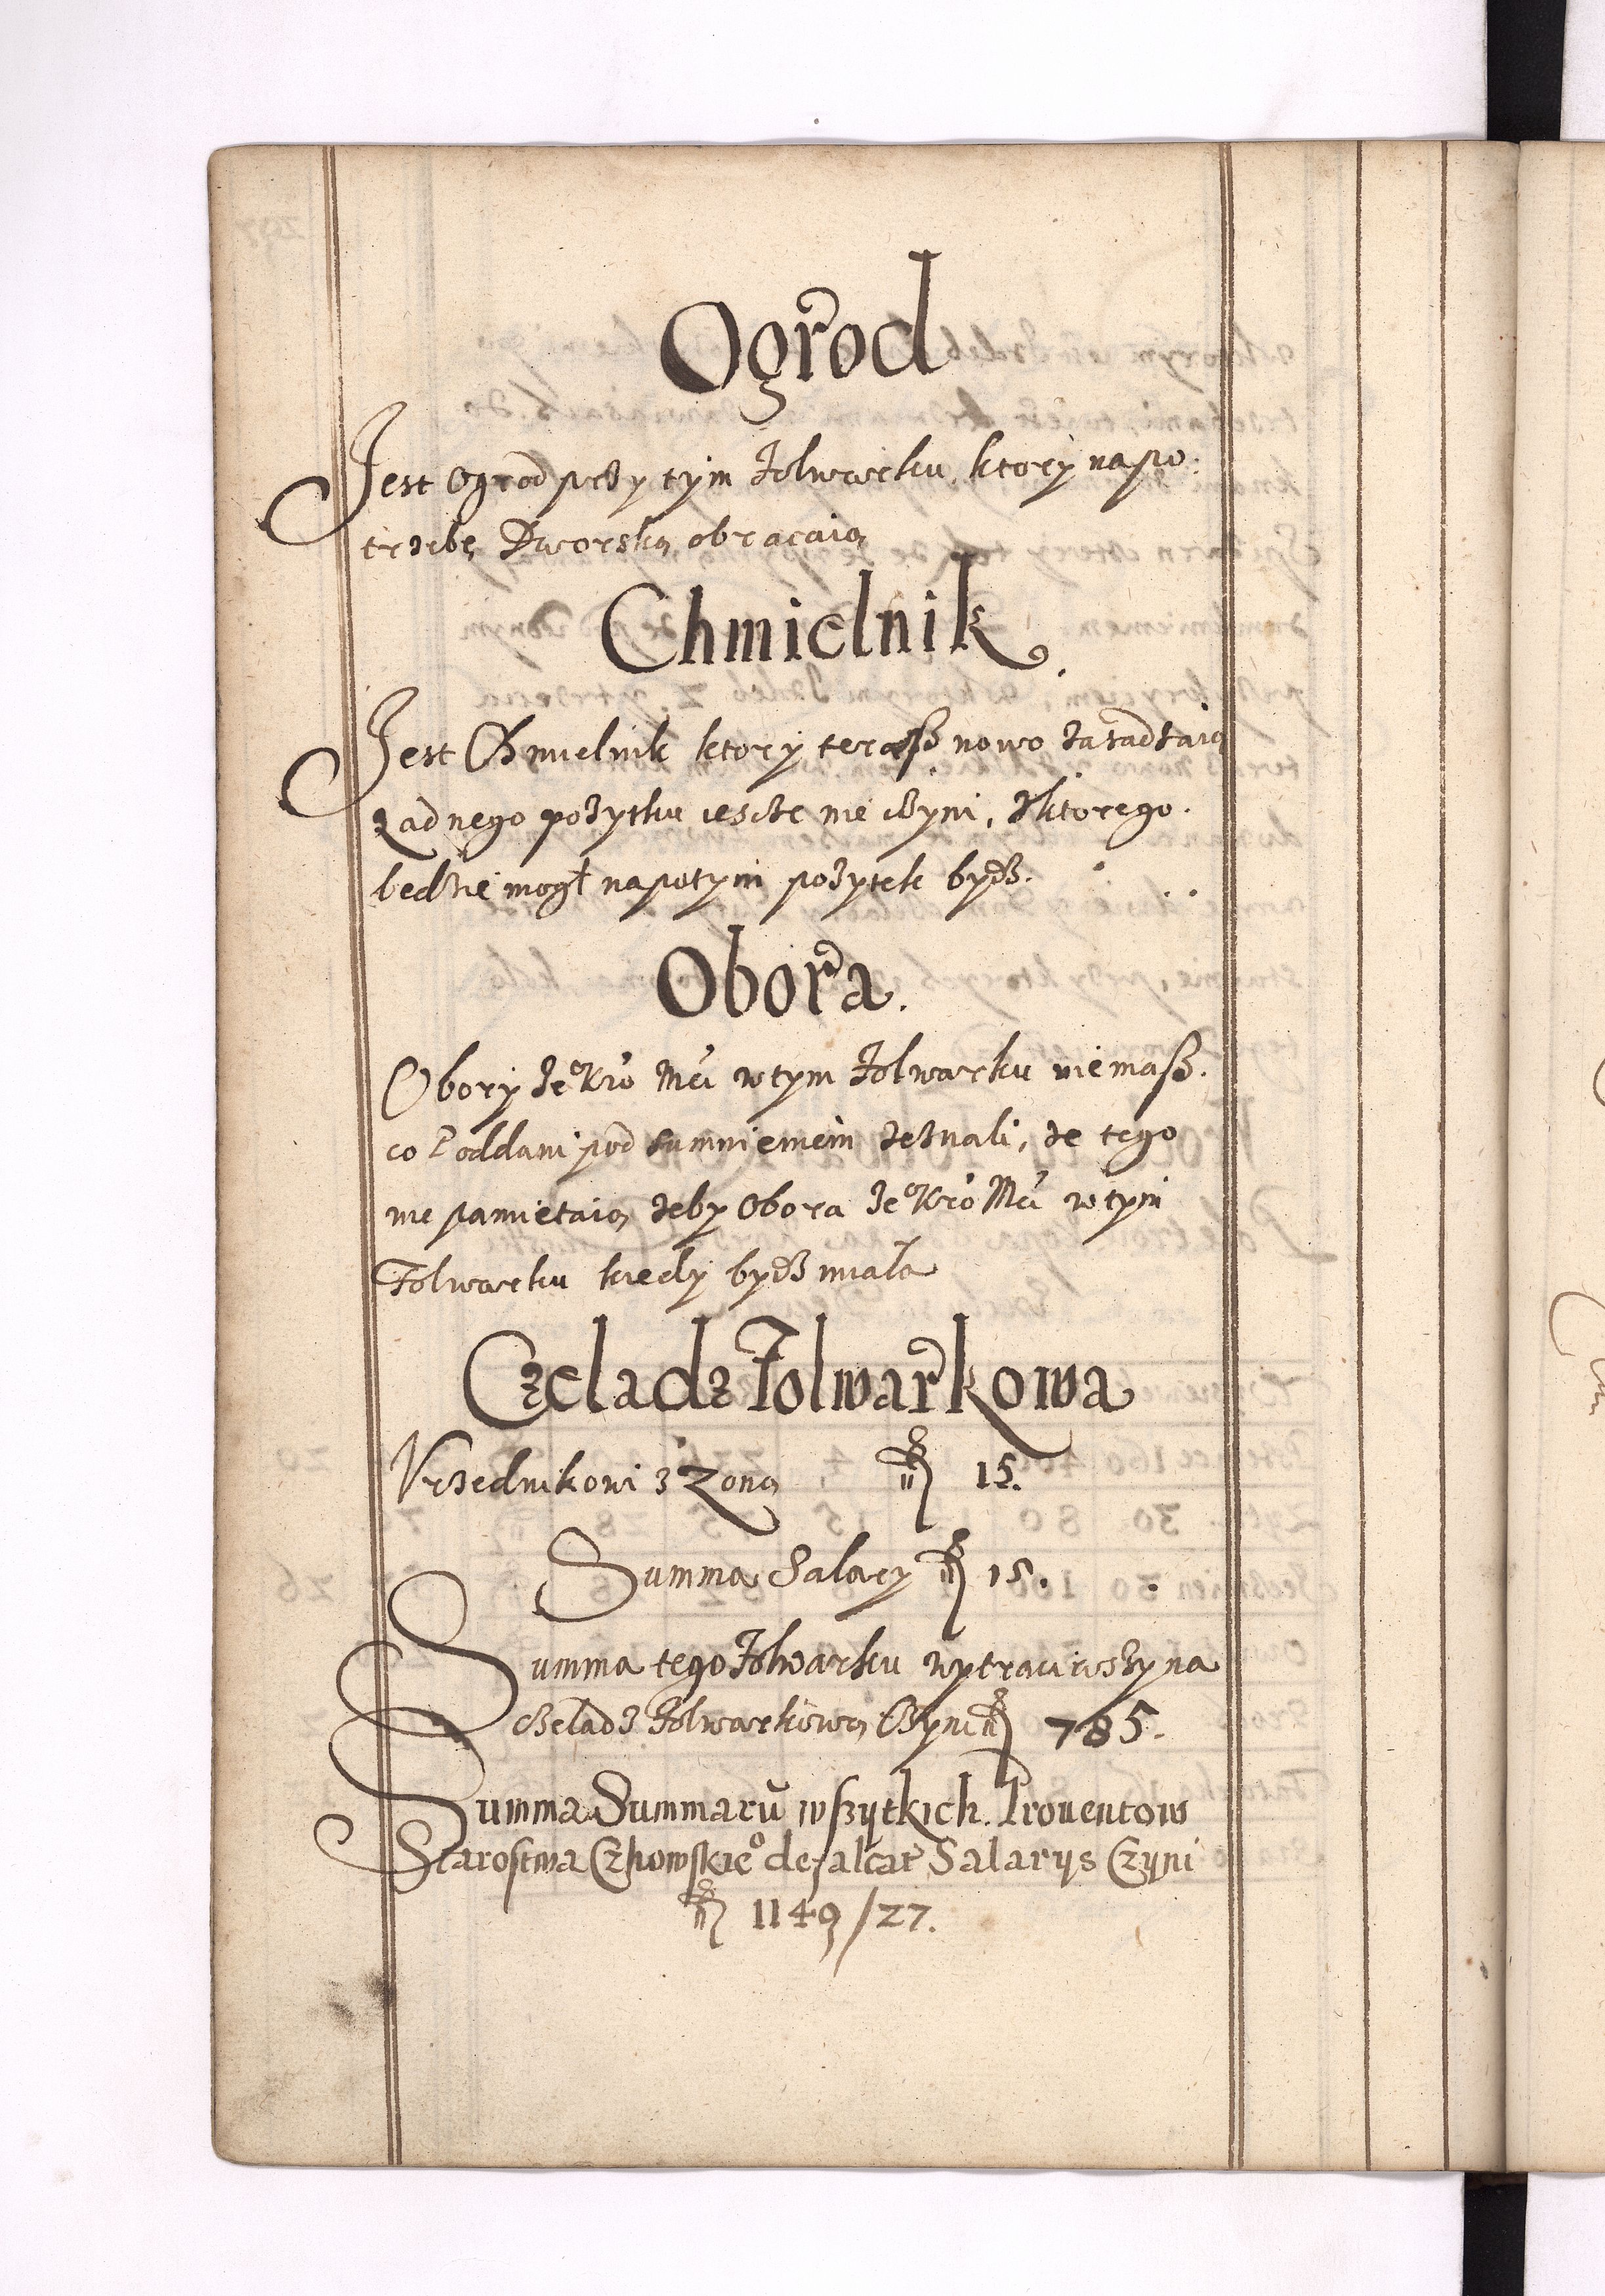 Ogrod
Jest Ogrod przy tym folwarku, ktory na po:
trzebę Dworską obracaią
Chmielnik.
Jest Chmielnik ktory terasz nowo zasadzaią
Zadnego pozytku iescze nie czyni, z ktorego.
bedzie mogł napotym pozytek bydz.
Obora.
Obory Je° Kró Mći w tym folwarku niemasz.
co Poddani pod sumniemem zeznali, ze tego
nie pamietaią zeby Obora Je° Kró Mći w tym
Folwarku kiedy bydz miała
Czeladz Folwarkowa
Vrzednikowi z Zoną 15.
Summa Salary 15.
Summa tego folwarku wytraciwszy na
czeladz folwarkową Czyni 785.
Summa Summarū wszytkich Prouentow
Starostwa Czhowskie° defalcat Salarys Czyni
1149/27.